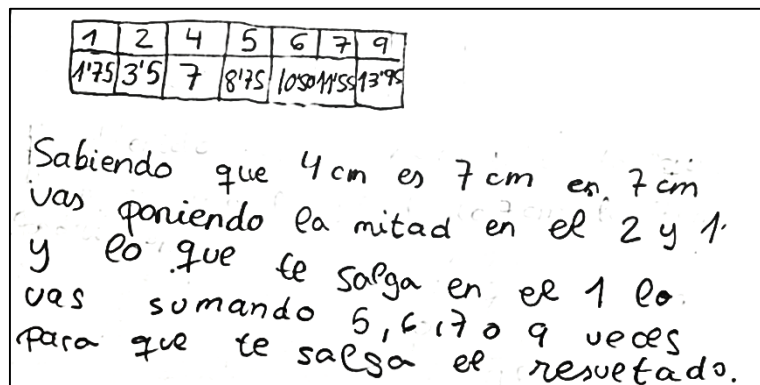 1 2 4 5 6 7 9
1'75 3'5 7 8'75 10'50 11'55 13'95
Sabiendo que 4 cm es 7 cm en. 7 cm
vas poniendo la mitad en el 2 y 1.
y lo que te salga en el 1 lo
vas sumando 5, 6, 7 o 9 veces
para que te salga el resuetado.